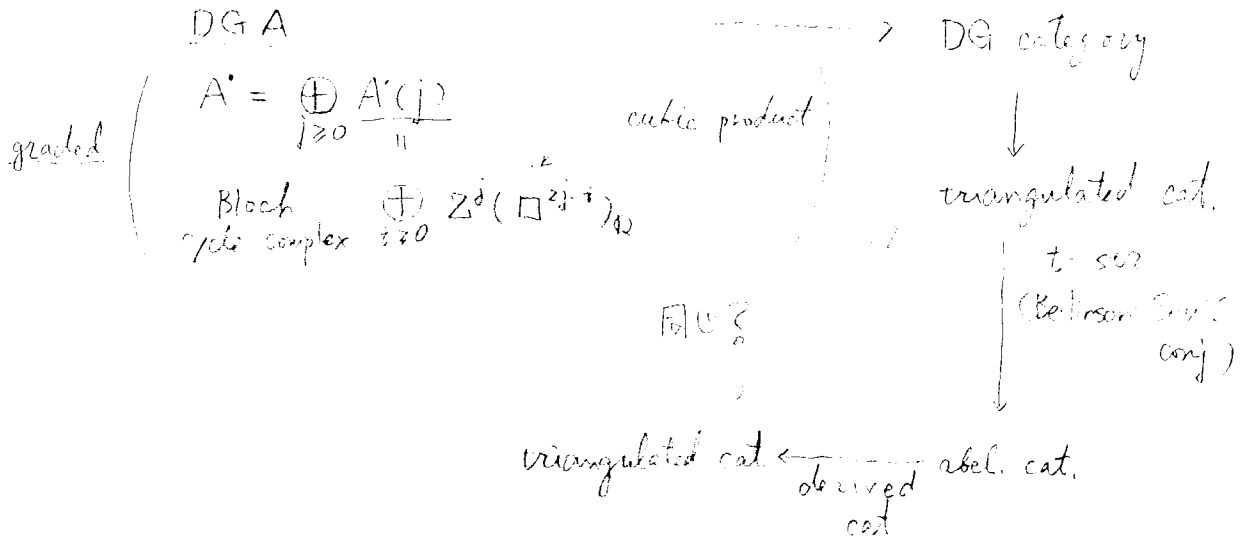 DGA
DG category
graded
A˙ = ⊕ A˙(j)
j≥0
"
cubic product
Bloch
cycle complex
⊕ Z^j(□^{2j-i})_Q
i≥0
triangulated cat.
t-str
(Beilinson-Soulé
conj)
同じ?
triangulated cat ← abel. cat.
derived
cat